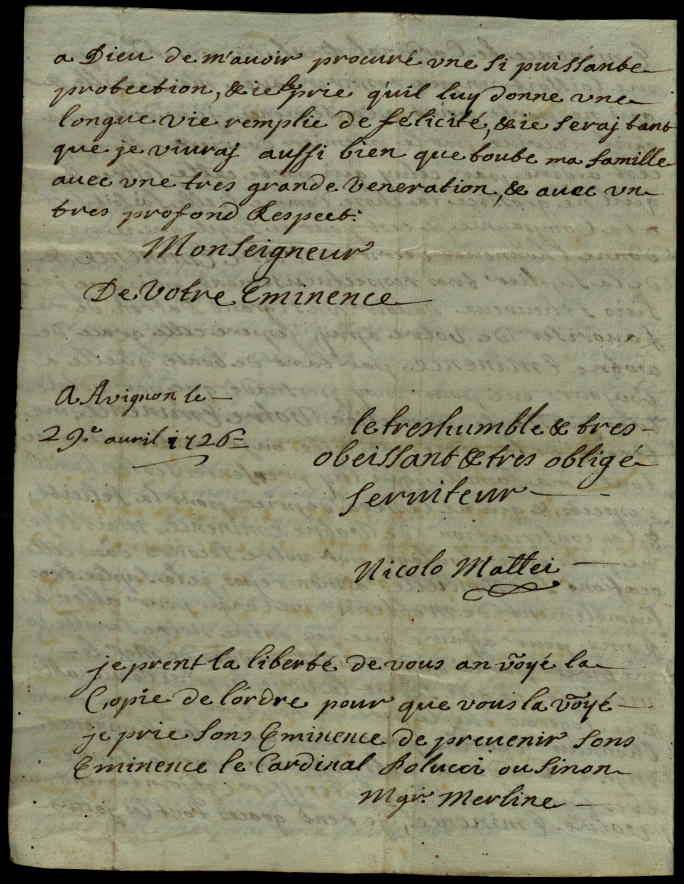 a Dieu de m'auoir procuré vne si puissante
protection, & ie le prie qu'il luy donne vne
longue vie remplie de félicité, & ie seraj tant
que je viuraj aussi bien que toute ma famille
auec vne tres grande veneration, & auec vn
tres profond Respect:
Monseigneur
De Votre Eminence
A Avignon le
29.e auril 1726
le tres humble & tres
obeissant & tres obligé
seruiteur
Nicolo Mattei
je prent la liberté de vous an voÿé la
Copie de l'ordre pour que vous la voÿé
je prie sons Eminence de preuenir sons
Eminence le Cardinal Polucci ou sinon
Mgr. Merline